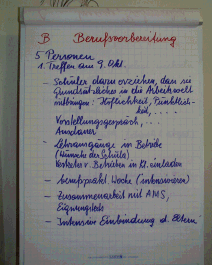 B Berufsvorbereitung
5 Personen
1. Treffen am 9. Okt.
- Schüler dazu erziehen, das zu
Grundsätzliches in die Arbeitswelt
mitbringen: Höflichkeit, Pünktlich-
keit, ....
Vorstellungsgespräch, ....
Ausdauer
- Lehrgänge in Betriebe
(Wünsche der Schüler)
v. Betrieben in Kl. einladen
- berufsprakt. Woche (intensivieren)
- Zusammenarbeit mit AMS,
Eignungstests
- Intensive Einbindung d. Eltern